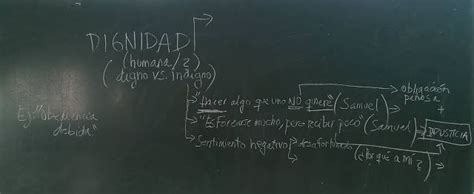 DIGNIDAD
(humana/?)
(digno vs. indigno)
Ej: "obediencia debida"
"Hacer algo que uno NO quere" (Samuel) → obligación penosa
+
"Esforzarse mucho, pero recibir poco" (Samuel) = INJUSTICIA
Sentimiento negativo desafortunado (¿Por qué a mí?)